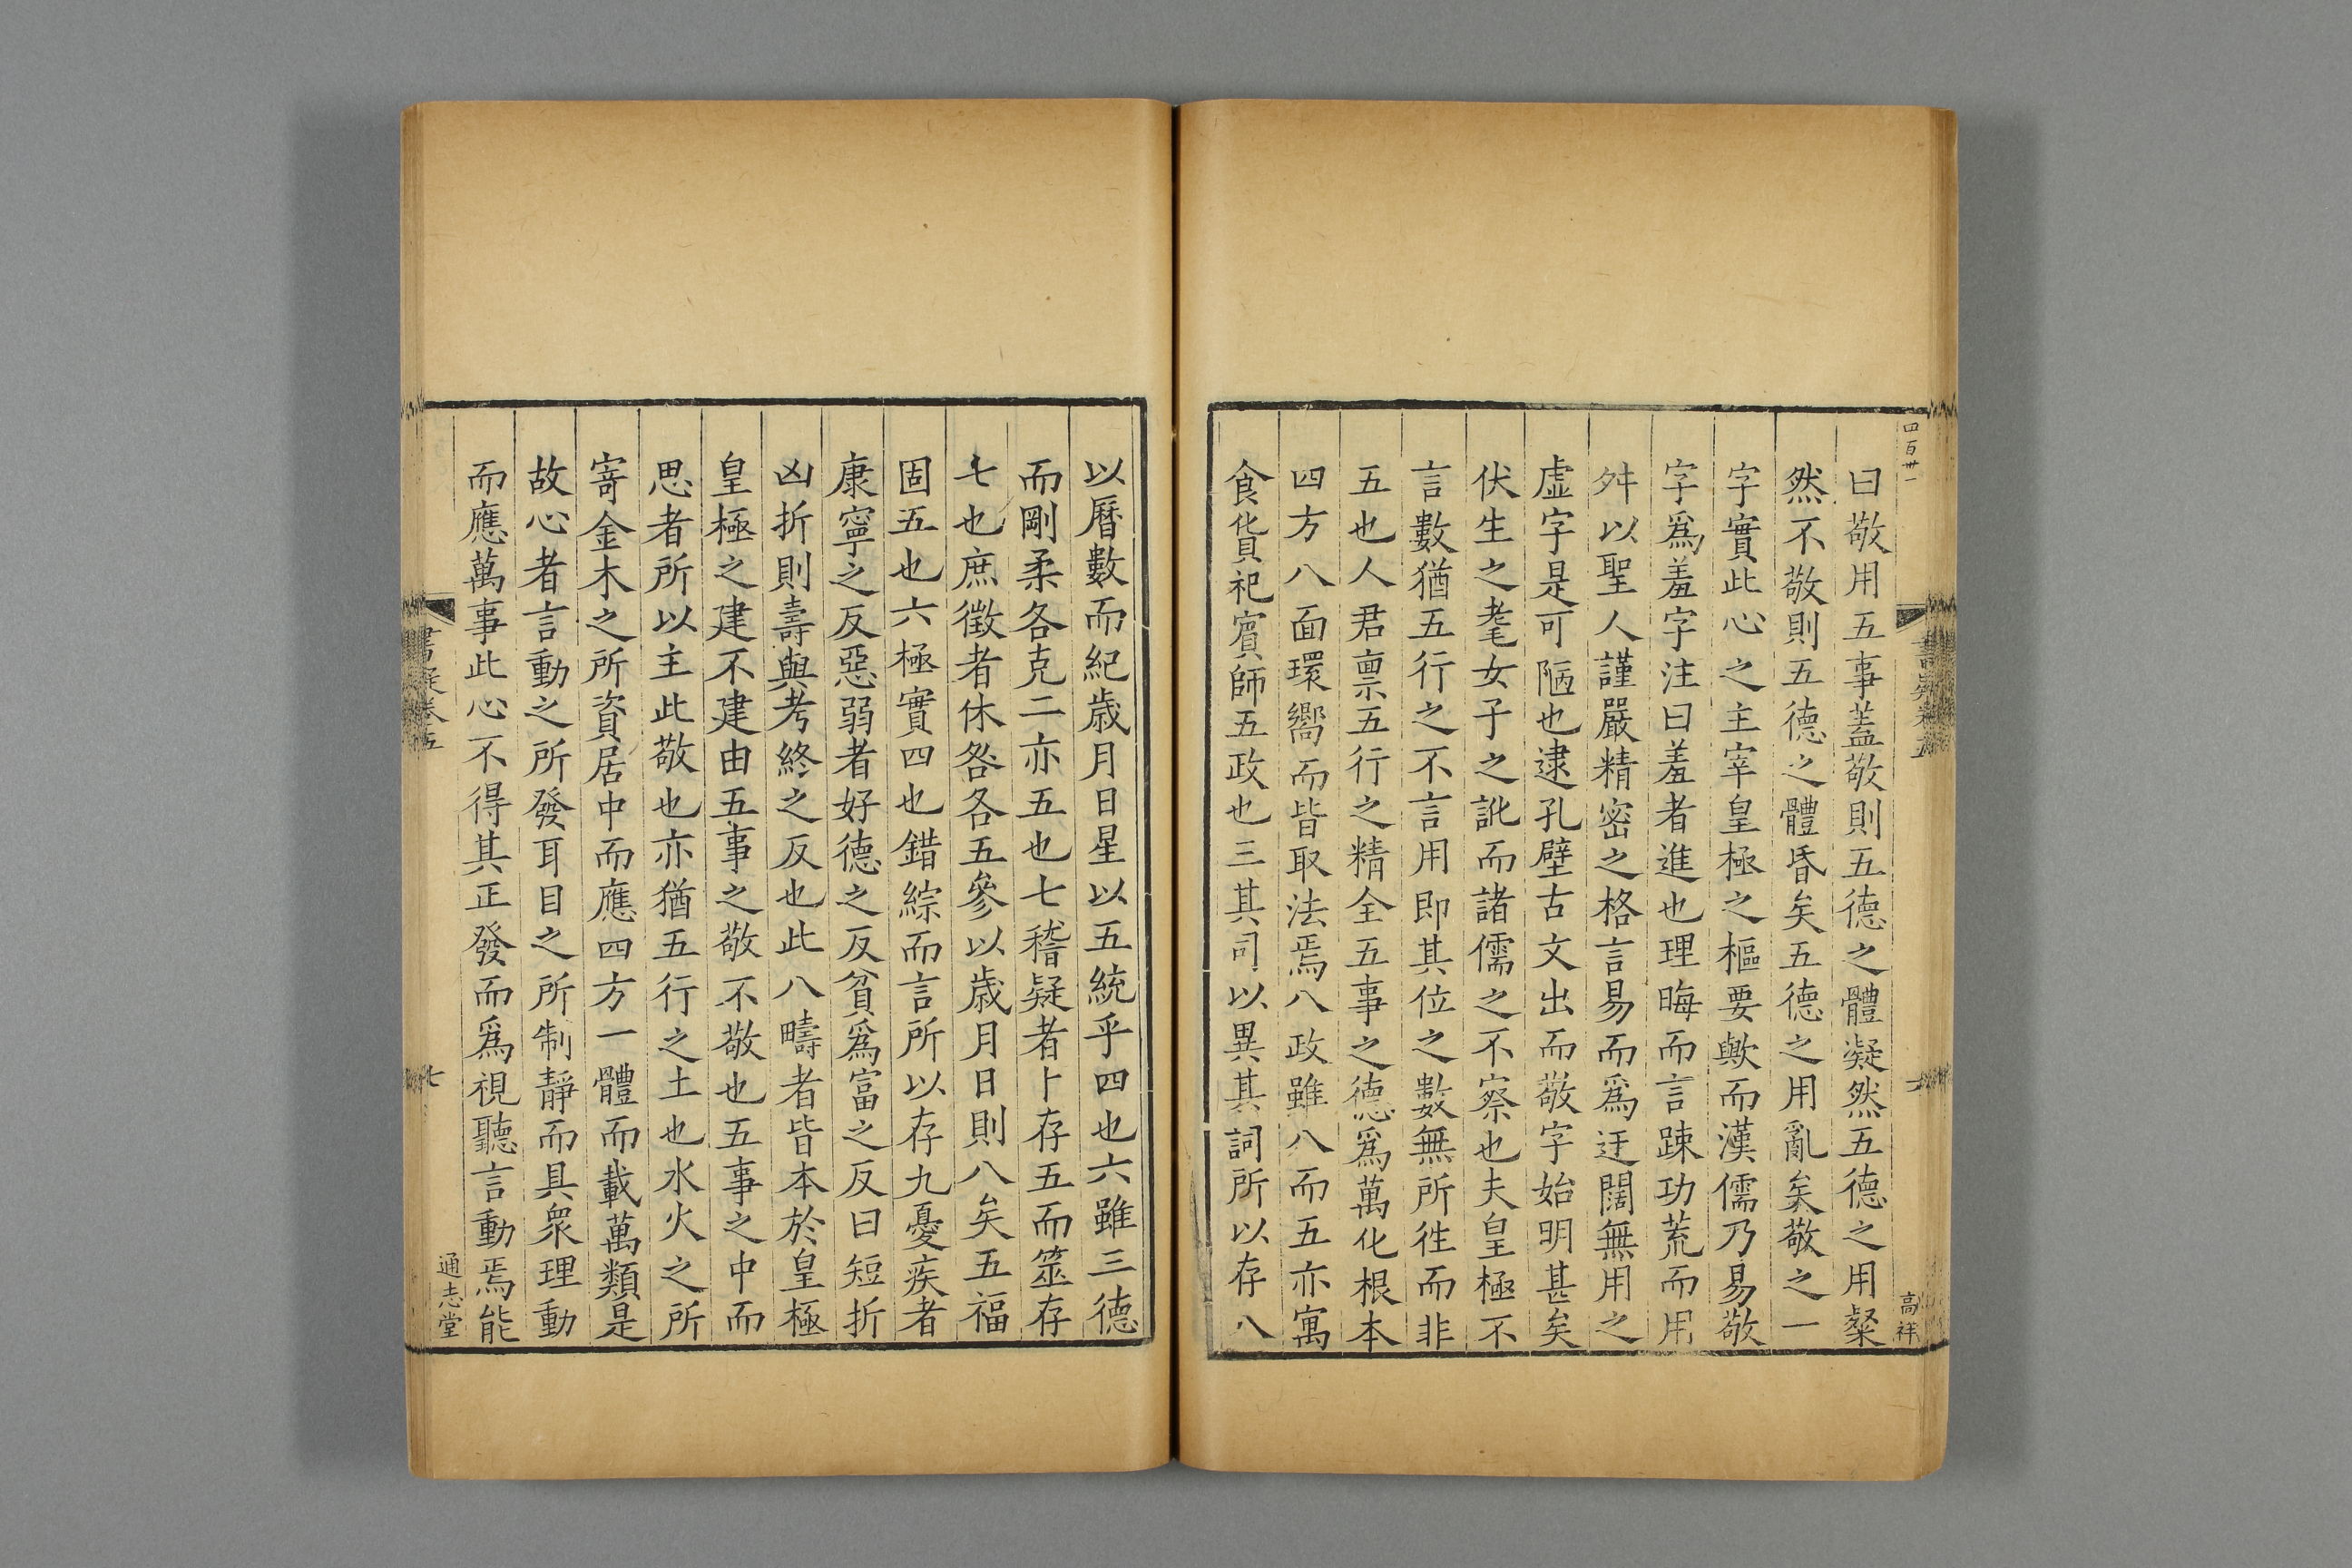 四百卅一
書疑卷五
高祥
曰敬用五事蓋敬則五德之體凝然五德之用粲
然不敬則五德之體昏矣五德之用亂矣敬之一
字實此心之主宰皇極之樞要歟而漢儒乃易敬
字爲羞字注曰羞者進也理晦而言踈功荒而用
舛以聖人謹嚴精密之格言易而爲迂闊無用之
虚字是可陋也逮孔壁古文出而敬字始明甚矣
伏生之耄女子之訛而諸儒之不察也夫皇極不
言數猶五行之不言用即其位之數無所徃而非
五也人君禀五行之精全五事之德爲萬化根本
四方八面環嚮而皆取法焉八政雖八而五亦寓
食貨祀賓師五政也三其司以異其詞所以存八
以曆數而紀歲月日星以五統乎四也六雖三德
而剛柔各克二亦五也七稽疑者卜存五而筮存
七也庶徵者休咎各五參以歲月日則八矣五福
固五也六極實四也錯綜而言所以存九憂疾者
康寧之反惡弱者好德之反貧爲富之反曰短折
凶折則壽與考終之反也此八疇者皆本於皇極
皇極之建不建由五事之敬不敬也五事之中而
思者所以主此敬也亦猶五行之土也水火之所
寄金木之所資居中而應四方一體而載萬類是
故心者言動之所發耳目之所制靜而具衆理動
而應萬事此心不得其正發而爲視聽言動焉能
書疑卷五
七
通志堂